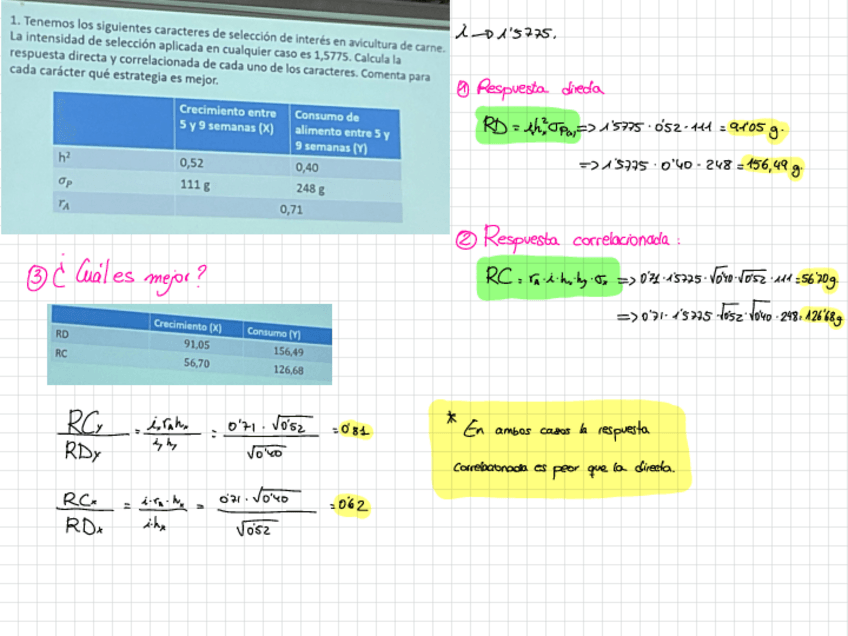 1. Tenemos los siguientes caracteres de selección de interés en avicultura de carne.
La intensidad de selección aplicada en cualquier caso es 1,5775. Calcula la
respuesta directa y correlacionada de cada uno de los caracteres. Comenta para
cada carácter qué estrategia es mejor.
Crecimiento entre 5 y 9 semanas (X) Consumo de alimento entre 5 y 9 semanas (Y)
h² 0,52 0,40
σP 111 g 248 g
rA 0,71
i → 1'5775.
① Respuesta directa
RD = i h²x σP(x) => 1'5775 · 0'52 · 111 = 91'05 g.
=> 1'5775 · 0'40 · 248 = 156,49 g.
② Respuesta correlacionada :
RC = rA · i · hx · hy · σx => 0'71 · 1'5775 · √0'40 · √0'52 · 111 = 56'70 g.
=> 0'71 · 1'5775 · √0'52 · √0'40 · 248 = 126'68 g
③ ¿ Cuál es mejor?
Crecimiento (X) Consumo (Y)
RD 91,05 156,49
RC 56,70 126,68
RCy / RDy = i · rA hx / iy hy = 0'71 · √0'52 / √0'40 = 0'81
RCx / RDx = i · rA · hy / i · hx = 0'71 · √0'40 / √0'52 = 0'62
* En ambos casos la respuesta
correlacionada es peor que la directa.